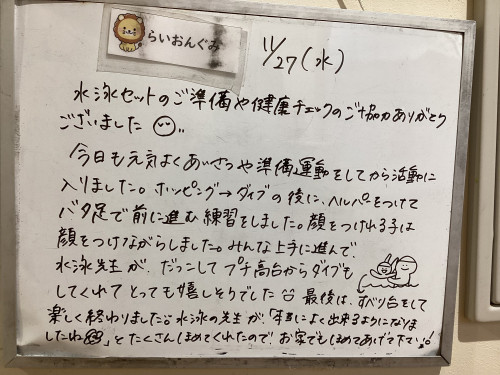 らいおんぐみ
11/27(水)
水泳セットのご準備や健康チェックのご協力ありがとう
ございました
今日も元気よくあいさつや準備運動をしてから活動に
入りました。ホッピング→ダイブの後に、ヘルパーをつけて
バタ足で前に進む練習をしました。顔をつけれる子は
顔をつけながらしました。みんな上手に進んで、
水泳先生が、だっこして プチ高台からダイブも
してくれて とっても嬉しそうでした 最後は、すべり台をして
楽しく終わりました。水泳の先生が、「本当によく出来るようになりま
したね」と たくさんほめてくれたので お家でもほめてあげて下さい!!